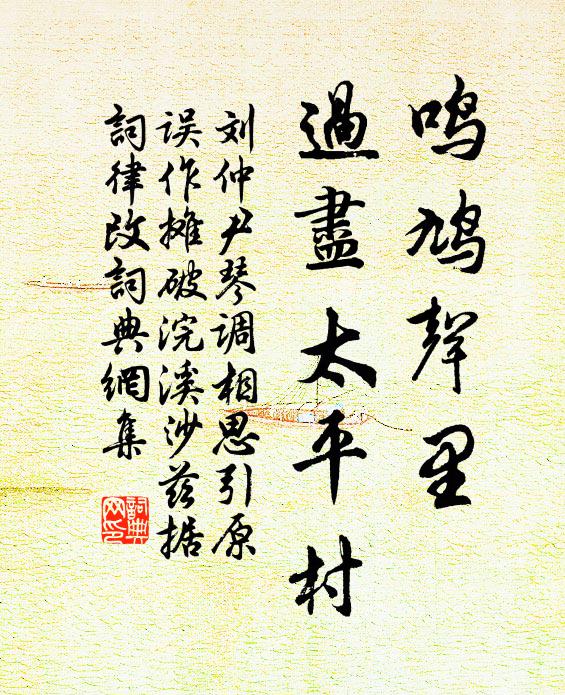 鸣鸠聲里
過盡太平村
刘仲尹琴调相思引原
误作摊破浣溪沙兹据
詞律改詞典網集
詞典
网印